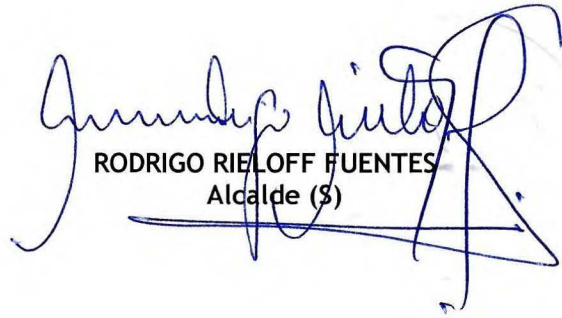 RODRIGO RIELOFF FUENTES
Alcalde (S)